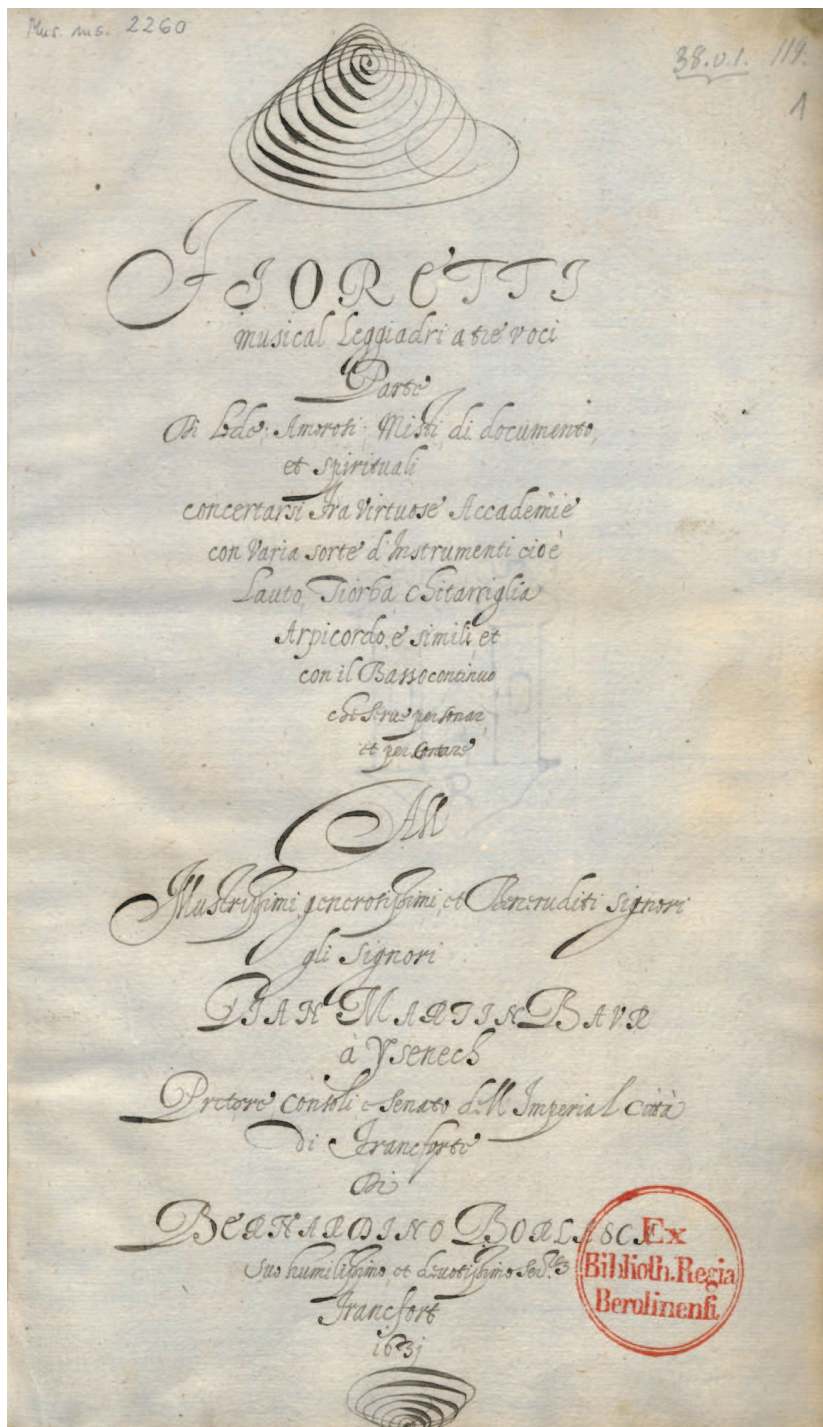 Mus. ms. 2260
38.v.1. 119.
1
FIORETTI
musical Leggiadri a tre voci
Parte
Di Lode; Amorosi; Misti, di documento,
et spirituali
concertarsi fra virtuose Accademie
con Varia sorte d'Instrumenti cioè
Lauto, Tiorba Chitarriglia
Arpicordo, e simili, et
con il Basso continuo
che serve per sonar,
et per Cantare
All
Illustrissimi, generosissimi, et Beneruditi signori
gli signori
GIAN MARTIN BAVR
à Ysenech
Pretore, Consoli e Senato dell Imperial Città
di Francforte
Di
BERNARDINO BORLASCA
Suo humilissimo, et devotissimo
Francfort
1631
Ex
Biblioth. Regia
Berolinensi.